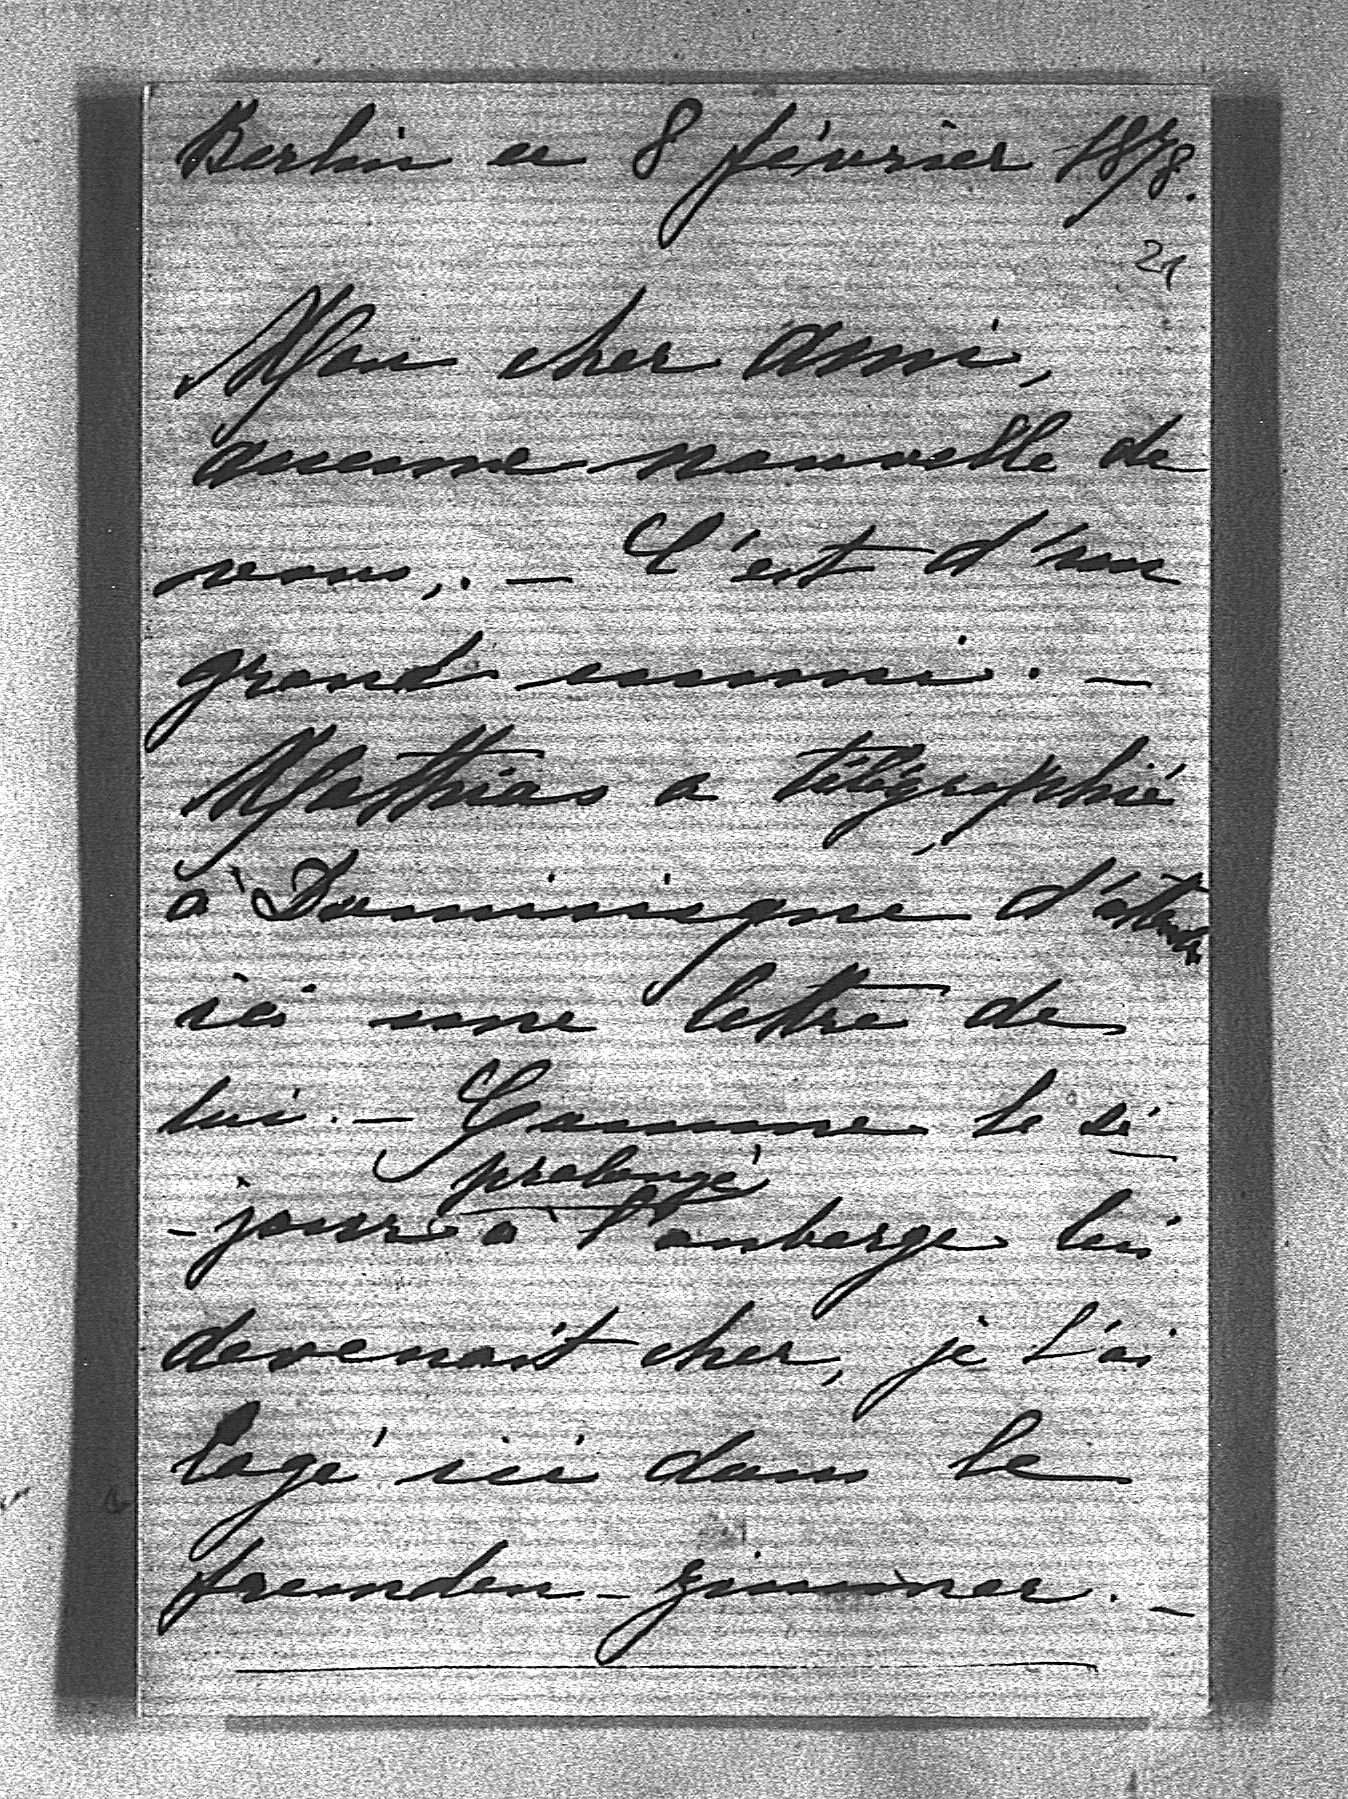 Berlin ce 8 février 1878.
21
Mon cher ami,
aucune nouvelle de
vous,. – C'est d'un
grand ennui. –
Mathias a télégraphié
à Dominique d'attendre
ici une lettre de
lui. – Comme le sé-
prolongé
-jour à l'auberge lui
devenait cher, je l'ai
logé ici dans le
fremden-zimmer. –